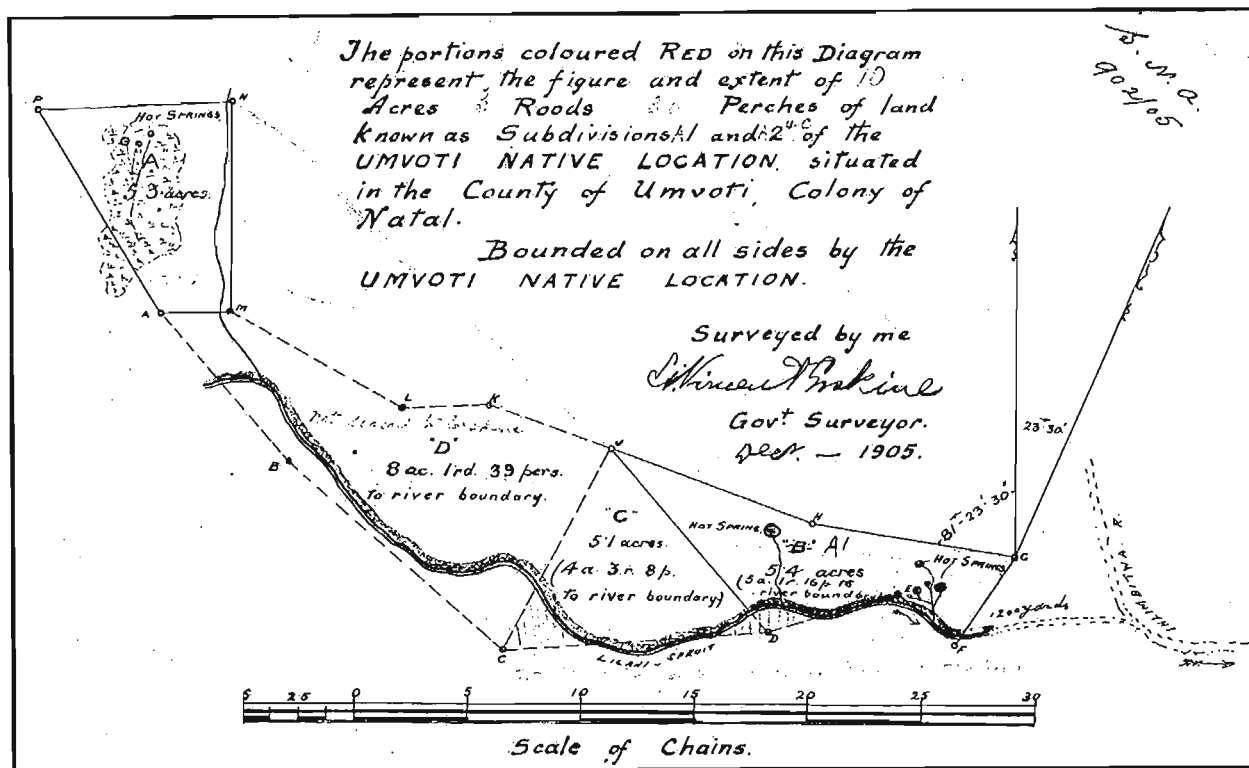 The portions coloured RED on this Diagram
represent the figure and extent of 10
Acres 3 Roods Perches of land
known as Subdivisions A1 and 2 of the
UMVOTI NATIVE LOCATION, situated
in the County of Umvoti, Colony of
Natal.
Bounded on all sides by the
UMVOTI NATIVE LOCATION.
902/05
Surveyed by me
St. Vincent Erskine
Govt Surveyor.
1905.
P
N
HOT SPRINGS
A
5.3 acres.
A
M
L
K
"D"
8 ac. 1rd. 39 pers.
to river boundary.
B
J
"C"
5.1 acres.
(4 a. 3 r. 8 p.
to river boundary)
HOT SPRING
H
"B" A1
5.4 acres
(5a. 1r. 16p to
river boundary
81-23'-30"
23-30'
G
HOT SPRINGS
E
D
F
1200 yards
C
LILANI SPRUIT
INHLIMBITWA R.
5 2.5 0 5 10 15 20 25 30
Scale of Chains.